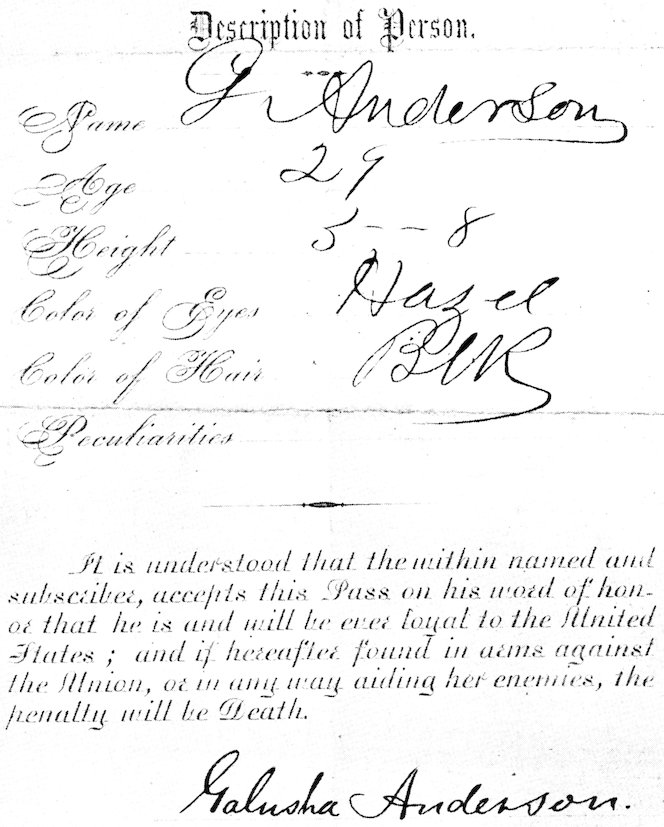 Description of Person.
Name G. Anderson
Age 29
Height 5--8
Color of Eyes Hazel
Color of Hair Blk
Peculiarities
It is understood that the within named and
subscriber, accepts this Pass on his word of hon-
or that he is and will be ever loyal to the United
States; and if hereafter found in arms against
the Union, or in any way aiding her enemies, the
penalty will be Death.
Galusha Anderson.